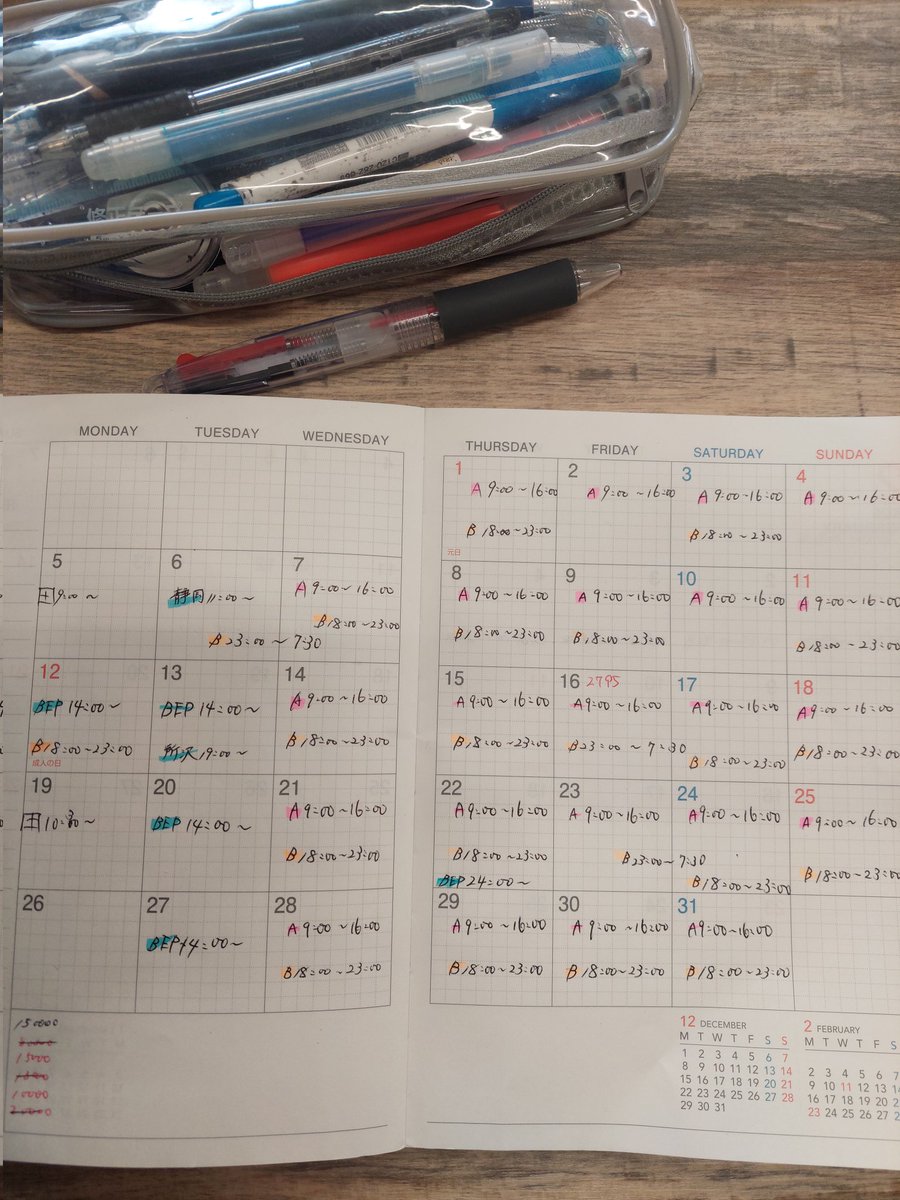 MONDAY TUESDAY WEDNESDAY THURSDAY FRIDAY SATURDAY SUNDAY
1
A 9:00～16:00
B 18:00～23:00
元日
2
A 9:00～16:00
3
A 9:00～16:00
B 18:00～23:00
4
A 9:00～16:00
5
9:00～
6
静岡 11:00～
B 23:00～7:30
7
A 9:00～16:00
B 18:00～23:00
8
A 9:00～16:00
B 18:00～23:00
9
A 9:00～16:00
B 18:00～23:00
10
A 9:00～16:00
11
A 9:00～16:00
B 18:00～23:00
12
BEP 14:00～
B 18:00～23:00
成人の日
13
BEP 14:00～
所沢 19:00～
14
A 9:00～16:00
B 18:00～23:00
15
A 9:00～16:00
B 18:00～23:00
16 2795
A 9:00～16:00
B 23:00～7:30
17
A 9:00～16:00
B 18:00～23:00
18
A 9:00～16:00
B 18:00～23:00
19
20
BEP 14:00～
21
A 9:00～16:00
B 18:00～23:00
22
A 9:00～16:00
B 18:00～23:00
BEP 24:00～
23
A 9:00～16:00
B 23:00～7:30
24
A 9:00～16:00
B 18:00～23:00
25
A 9:00～16:00
B 18:00～23:00
26
27
BEP 14:00～
28
A 9:00～16:00
B 18:00～23:00
29
A 9:00～16:00
B 18:00～23:00
30
A 9:00～16:00
B 18:00～23:00
31
A 9:00～16:00
B 18:00～23:00
150000
15000
10000
12 DECEMBER
M T W T F S S
1 2 3 4 5 6 7
8 9 10 11 12 13 14
15 16 17 18 19 20 21
22 23 24 25 26 27 28
29 30 31
2 FEBRUARY
M T W T F S
2 3 4 5 6 7
9 10 11 12 13 14
16 17 18 19 20 21
23 24 25 26 27